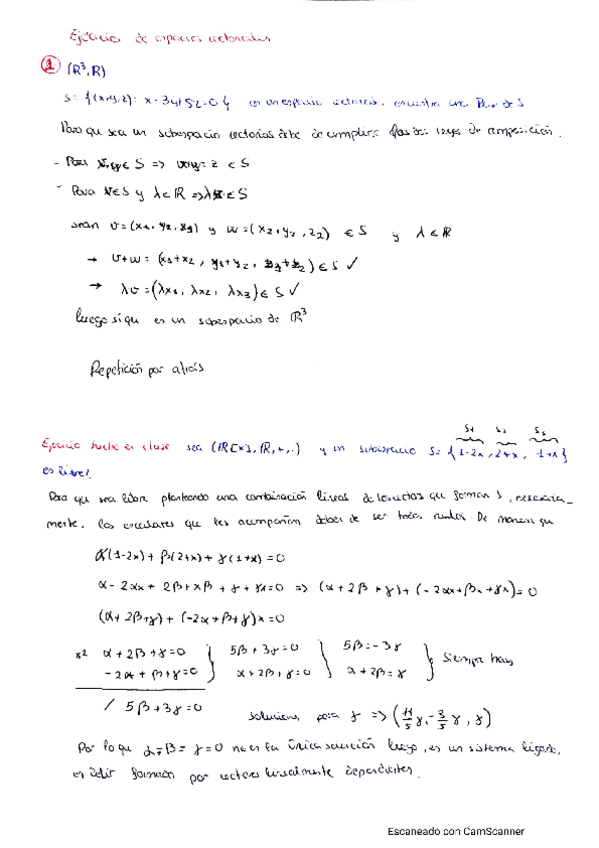 Ejercicios de espacios vectoriales
1 (R³, R)
S = {(x,y,z): x - 3y + 5z = 0} es un espacio vectorial, encuentra una Base de S
Para que sea un subespacio vectorial debe de cumplirse las dos leyes de composición.
- Para ∈ S => ∈ S
- Para v ∈ S y λ ∈ R => ∈ S
sean v = (x1, y1, z1) y w = (x2, y2, z2) ∈ S y λ ∈ R
→ v+w = (x1+x2, y1+y2, z1+z2) ∈ S ✓
→ λv = (λx1, λx2, λx3) ∈ S ✓
luego sí que es un subespacio de R³
Repetición por atrás
Ejercicio hecho en clase sea (R[x], R, +, .) y un subespacio S = {1-2x, 2+x, 1+x}
S1 S2 S3
es libre?
Para que sea libre planteando una combinación lineal de los vectores que forman S, necesaria-
mente, los escalares que les acompañan deben de ser todos nulos. De manera que
α(1-2x) + β(2+x) + γ(1+x) = 0
α - 2αx + 2β + xβ + γ + γx = 0 => (α + 2β + γ) + (-2αx + βx + γx) = 0
(α + 2β + γ) + (-2α + β + γ)x = 0
x2 α + 2β + γ = 0 } 5β + 3γ = 0 } 5β = -3γ } Siempre hay
-2α + β + γ = 0 α + 2β + γ = 0 α + 2β = γ
/ 5β + 3γ = 0
soluciones, para γ => ( γ, -3/5 γ, γ)
Por lo que α = β = γ = 0 no es la única solución luego, es un sistema ligado,
es decir formado por vectores linealmente dependientes.
Escaneado con CamScanner